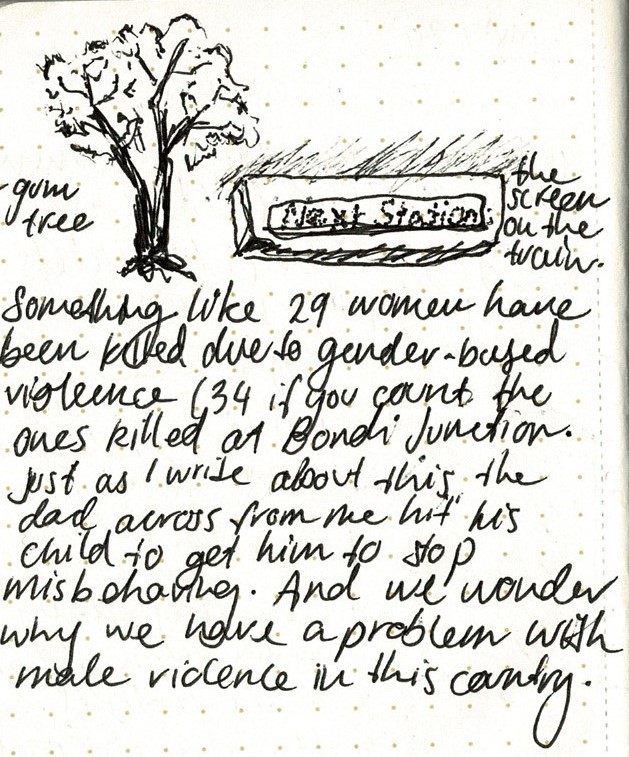 gum
tree
Next Station
the
screen
on the
train.
Something like 29 women have
been killed due to gender-based
violence (34 if you count the
ones killed at Bondi Junction.
Just as I write about this the
dad across from me hit his
child to get him to stop
misbehaving. And we wonder
why we have a problem with
male violence in this country.